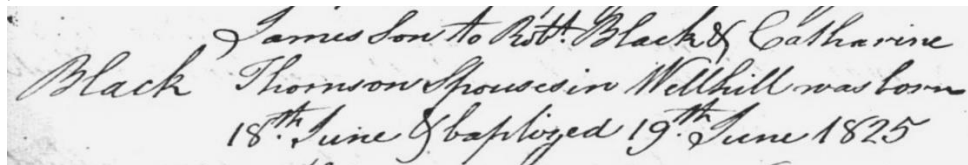 James Son to Robt. Black & Catharine
Black Thomson Spouses in Wellhill was born
18th June & baptized 19th June 1825